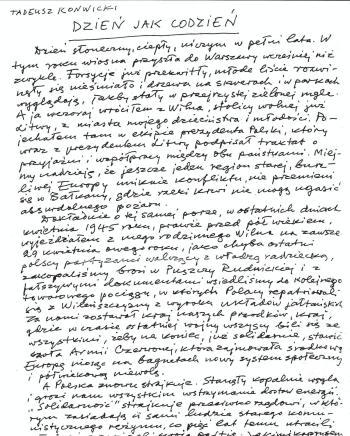 TADEUSZ KONWICKI
DZIEŃ JAK CODZIEŃ
Dzień słoneczny, ciepły, niczym w pełni lata. W
tym roku wiosna przyszła do Warszawy wcześniej niż
zwykle. Forsycje już przekwitły, młode liście rozwi-
nęły się nieśmiało i drzewa na skwerach i w parkach
wyglądają, jakby stały w przejrzystej zielonej mgle.
A ja wczoraj wróciłem z Wilna, stolicy wolnej już
Litwy, z miasta mojego dzieciństwa i młodości. Po-
jechałem tam w ekipie prezydenta Polski, który
wraz z prezydentem Litwy podpisał traktat o
przyjaźni i współpracy między obu państwami. Miej-
my nadzieję, że jeszcze jeden region starej, burz-
liwej Europy uniknie konfliktu, nie przemieni
się w Bałkany, gdzie rzeki krwi nie mogą ugasić
absurdalnego pożaru.
Dokładnie o tej samej porze, w ostatnich dniach
kwietnia 1945 roku, prawie przed pół wiekiem,
wyjeżdżałem z mego rodzinnego Wilna na zawsze.
29 kwietnia owego roku, jako chyba ostatni
polscy partyzanci walczący z władzą radziecką,
zakopaliśmy broń w Puszczy Rudnickiej i z
fałszywymi dokumentami wsiedliśmy do kolejnego
towarowego pociągu, w których Polacy repatriowali
się z Wileńszczyzny z wyroku układów jałtańskich.
Za nami zostawał kraj naszych przodków, kraj,
gdzie w czasie ostatniej wojny wszyscy bili się ze
wszystkimi, żeby na koniec, już solidarnie, stawić
czoła Armii Czerwonej, która zajmowała środkową
Europę niosąc na bagnetach nowy system społeczny
i półwiekową niewolę.
A Polska znowu strajkuje. Stanęły kopalnie węgla
i grozi nam wszystkim wstrzymanie dostaw energii.
"Solidarność" strajkuje przeciwko rządowi, w któ-
rym zasiadają ci sami ludzie starego komu-
nistycznego reżymu, co pięć lat temu utracili